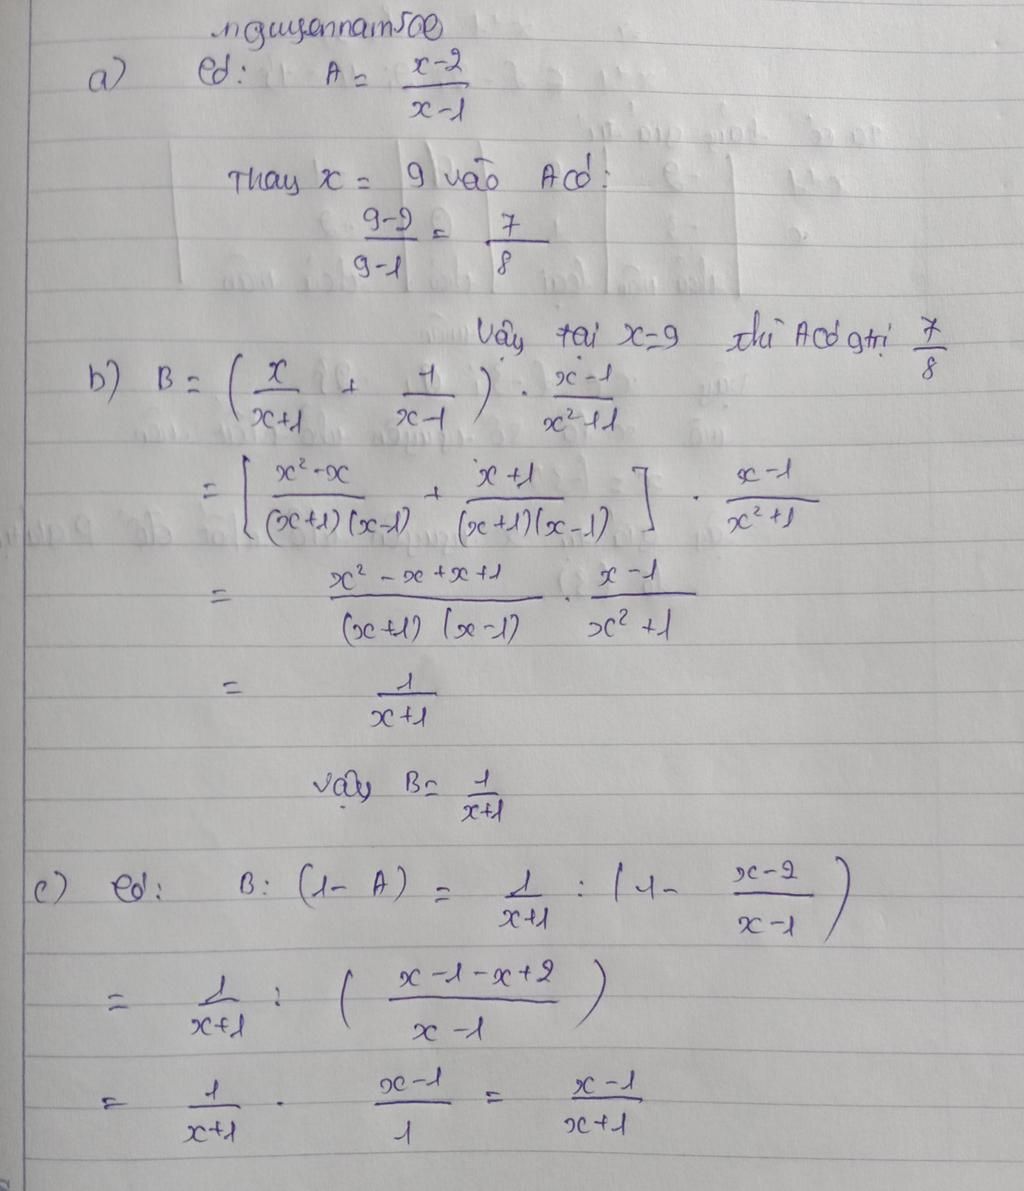 nguyennam50e
a) Có: A = \frac{x-2}{x-1}
Thay x = 9 vào A có:
\frac{9-2}{9-1} = \frac{7}{8}
Vậy tại x=9 thì A có gtrị \frac{7}{8}
b) B = (\frac{x}{x+1} + \frac{1}{x-1}) . \frac{x-1}{x²+1}
= [\frac{x²-x}{(x+1)(x-1)} + \frac{x+1}{(x+1)(x-1)}] . \frac{x-1}{x²+1}
= \frac{x²-x+x+1}{(x+1)(x-1)} . \frac{x-1}{x²+1}
= \frac{1}{x+1}
Vậy B = \frac{1}{x+1}
c) Có: B : (1 - A) = \frac{1}{x+1} : (1 - \frac{x-2}{x-1})
= \frac{1}{x+1} : (\frac{x-1-x+2}{x-1})
= \frac{1}{x+1} . \frac{x-1}{1} = \frac{x-1}{x+1}